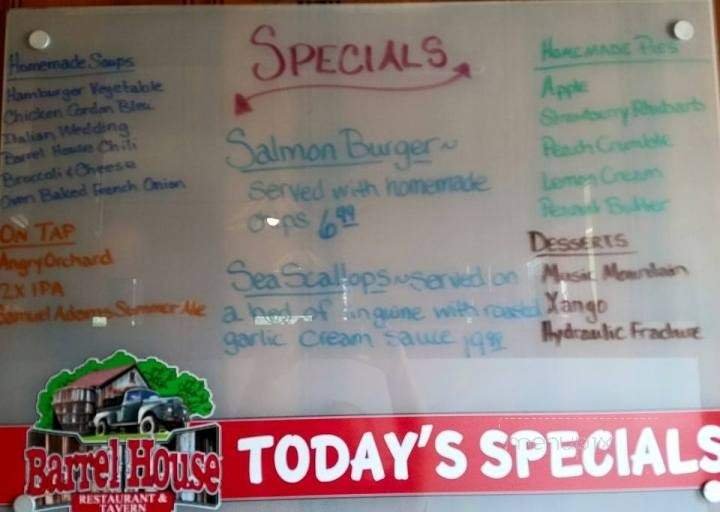 SPECIALS
Homemade Soups
Hamburger Vegetable
Chicken Cordon Bleu
Italian Wedding
Barrel House Chili
Broccoli & Cheese
Oven Baked French Onion
ON TAP
Angry Orchard
2X IPA
Samuel Adams Summer Ale
Salmon Burger~
served with homemade
6.99
Sea Scallops~served on
a bed of linguine with roasted
garlic cream sauce
HOMEMADE PIES
Apple
Strawberry Rhubarb
Peach Crumble
Lemon Cream
Peanut Butter
DESSERTS
Music Mountain
Xango
Hydraulic Fracture
Barrel House
RESTAURANT &
TAVERN
TODAY'S SPECIALS